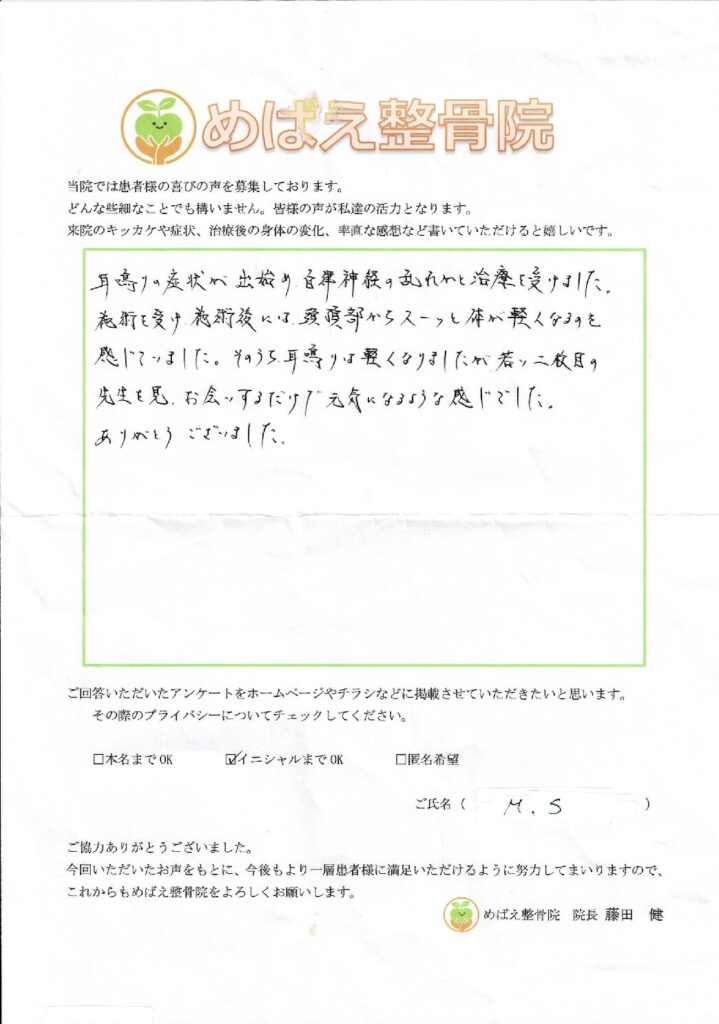 めばえ整骨院
当院では患者様の喜びの声を募集しております。
どんな些細なことでも構いません。皆様の声が私達の活力となります。
来院のキッカケや症状、治療後の身体の変化、率直な感想など書いていただけると嬉しいです。
耳鳴りの症状が出始め、自律神経の乱れかと治療を受けました。
施術を受け、施術後には、頭頂部からスーッと体が軽くなるのを
感じていました。そのうち、耳鳴りは軽くなりましたが、若い二枚目の
先生を見、お会いするだけで元気になるような感じでした。
ありがとうございました。
ご回答いただいたアンケートをホームページやチラシなどに掲載させていただきたいと思います。
その際のプライバシーについてチェックしてください。
□本名までOK ☑イニシャルまでOK □匿名希望
ご氏名（ M.S ）
ご協力ありがとうございました。
今回いただいたお声をもとに、今後もより一層患者様に満足いただけるように努力してまいりますので、
これからもめばえ整骨院をよろしくお願いします。
めばえ整骨院 院長 藤田 健